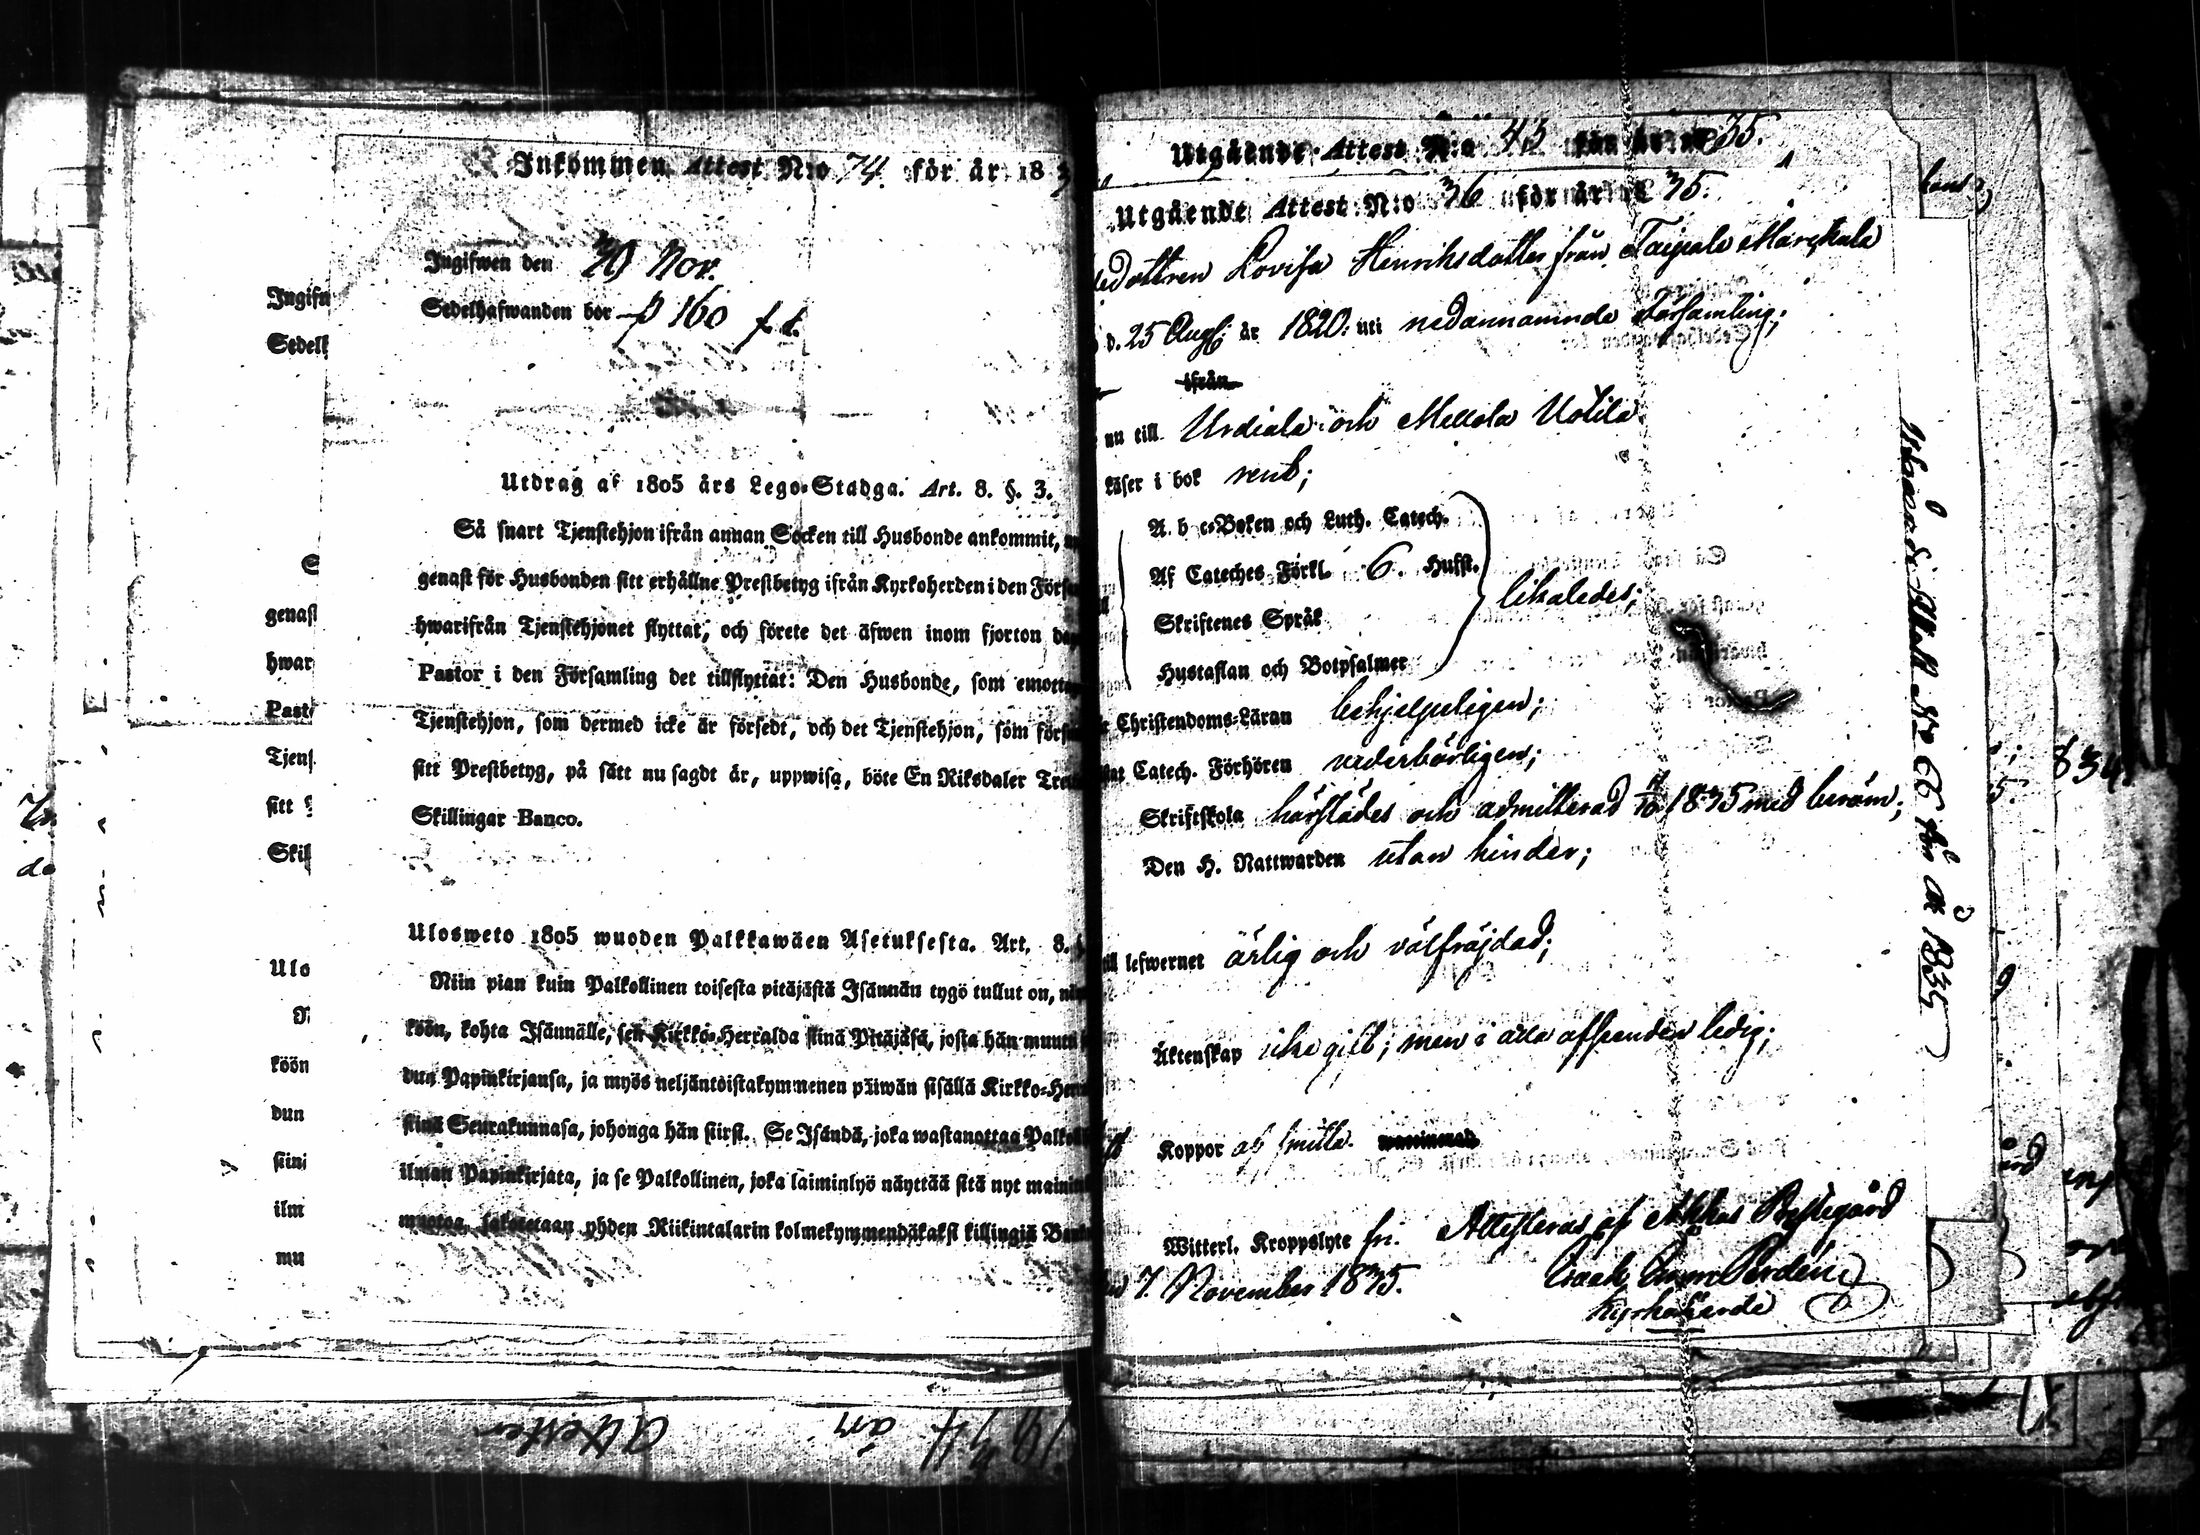 Inkommen Attest N:o 74. för år 18
Ingifwen den 20 Nov.
Sedelhafwanden bor p 160
Utdrag af 1805 års Lego-Stadga. Art. 8. §. 3.
Så snart Tjenstehjon ifrån annan Socken till Husbonde ankommit,
genast för Husbonden sitt erhållne Prestbetyg ifrån Kyrkoherden i den Förs
hwarifrån Tjenstehjonet flyttat, och förete det äfwen inom fjorton da
Pastor i den Församling det tillflyttat: Den Husbonde, som emotta
Tjenstehjon, som dermed icke är försedt, och det Tjenstehjon, som förs
sitt Prestbetyg, på sätt nu sagdt är, uppwisa, böte En Riksdaler Tre
Skillingar Banco.
Ulosweto 1805 wuoden Palkkawäen Asetuksesta. Art. 8.
Niin pian kuin Palkollinen toisesta pitäjästä Isännän tygö tullut on,
köön, kohta Isännälle, sen Kirkko-Herralda siinä Pitäjäsä, josta hän muutt
dun Papinkirjansa, ja myös neljäntoistakymmenen päiwän sisällä Kirkko-Her
siinä Seurakunnasa, johonga hän siirsi. Se Isändä, joka wastanottaa Palkol
ilman Papinkirjata, ja se Palkollinen, joka laiminlyö näyttää sitä nyt maini
muotoa, sakotetaan yhden Riikintalarin kolmekymmendäkaksi killingiä Ban
Ingifw
Sedelh
genast
hwar
Past
Tjens
sitt
Skil
Ulo
köön
dun
siin
ilm
mu
Utgående Attest N:o 43 för år 35.
Utgående Attest N:o 36 för år 35.
dottren Lovisa Henriksdotter från Taipale Marskala
d. 25 Aug. år 1820. uti nedannämnde Församling;
ifrån
nu till Urdiala och Mellola Uotila
läser i bok rent;
A. b c-Boken och Luth. Catech.
Af Cateches Förkl. 6. Hufst.
Skriftenes Språk
likaledes;
Hustaflan och Botpsalmer
Christendoms-Läran behjelpeligen;
Catech. Förhören vederbörligen;
Skriftskola härstädes och admitterad 4/10 1835 med beröm;
Den H. Nattwarden utan hinder;
till lefwernet ärlig och välfräjdad;
Äktenskap icke gift; men i alla afseenden ledig;
Koppor af smitta.
Witterl. Kroppslyte fri. Attesteras af Akkas Prestegård
7. November 1835.
Kyrkoherde
Utgående Attest N:o 66 för år 1835
Attester